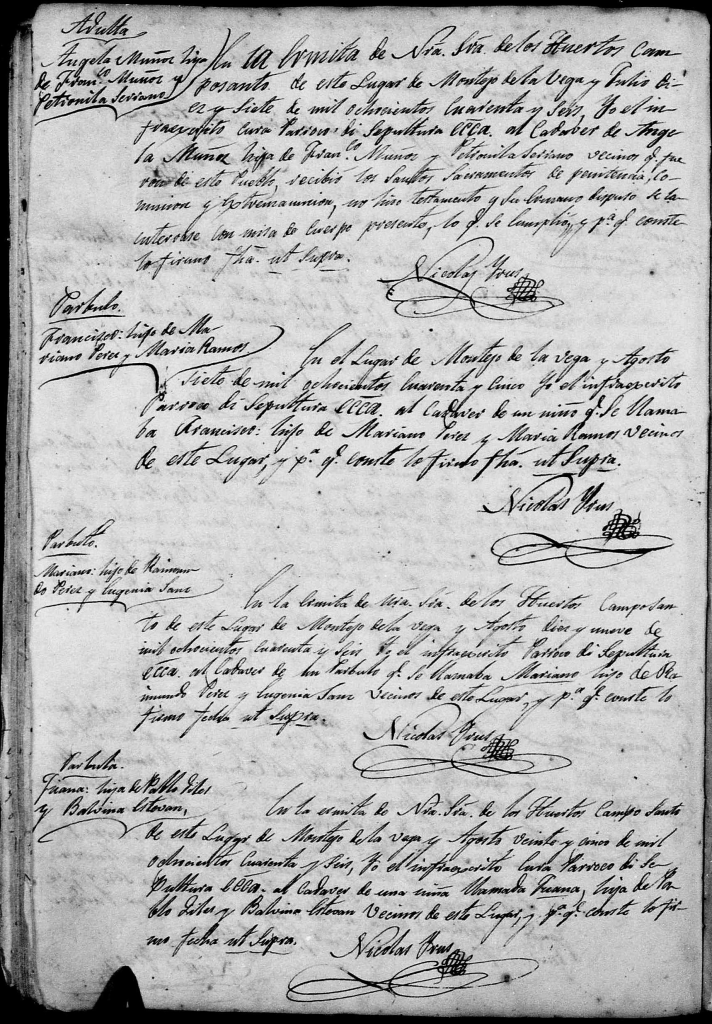 Adulta
Angela Muñoz hija
de Fran.co Muñoz y
Petronila Seriano
En la Ermita de Nra. Sra. de los Huertos Cam
posanto de este Lugar de Montejo de la Vega y Julio di-
ez y Siete de mil ochocientos Cuarenta y Seis, Yo el in
fraexcrito Cura Parroco di Sepultura ecca. al Cadaver de Ange
la Muñoz hija de Fran.co Muñoz y Petronila Seriano vecinos q.e fue
ron de este Pueblo, recibió los Santos Sacramentos de penitencia, co
munion y Extremauncion, no hizo testamento y Su hermano dispuso se la
interrase con misa de Cuerpo presente, lo q.e Se Cumplió, y p.a q.e conste
lo firmo fha. ut Supra.
Nicolas Yrus
Parbulo.
Francisco: hijo de Ma-
riano Perez y Maria Ramos.
En el Lugar de Montejo de la Vega y Agosto
Siete de mil ochocientos Cuarenta y Cinco Yo el infraexcrito
Parroco di Sepultura ecca. al Cadaver de un niño q.e Se llama
ba Francisco: hijo de Mariano Perez y Maria Ramos vecinos
de este Lugar, y p.a q.e conste lo firmo fha. ut Supra.
Nicolas Yrus
Parbulo.
Mariano: hijo de Raimun
do Perez y Eugenia Sanz
En la Ermita de Nra. Sra. de los Huertos Campo San
to de este Lugar de Montejo de la Vega y Agosto diez y nueve de
mil ochocientos Cuarenta y Seis Yo el infraexcrito Parroco di Sepultura
ecca. al Cadaver de un Parbulo q.e Se llamaba Mariano hijo de Ra
imundo Perez y Eugenia Sanz Vecinos de este Lugar, y p.a q.e conste lo
firmo fecha ut Supra.
Nicolas Yrus
Parbula
Juana: hija de Pablo Giles
y Balvina Estevan,
En la ermita de Nra. Sra. de los Huertos Campo Santo
de este Lugar de Montejo de la Vega y Agosto veinte y cinco de mil
ochocientos Cuarenta y Seis, Yo el infraexcrito Cura Parroco di Se
pultura ecca. al Cadaver de una niña llamada Juana, hija de Pa
blo Giles y Balvina Estevan Vecinos de este Lugar, y p.a q.e conste lo fir-
mo fecha ut Supra.
Nicolas Yrus